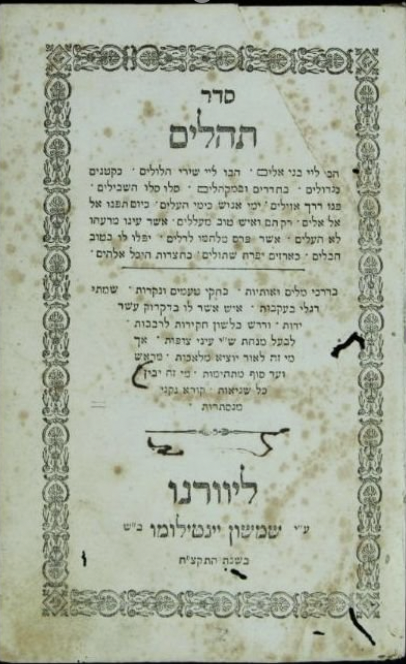 סדר
תהלים
הבו ליי בני אלים · הבו ליי שירי הלולים · כקטנים
כגדולים · בחדרים ובמקהלים · סלו סלו השבילים ·
פנו דרך אזולים · ימי אנוש כימי העלים · כיום תפנו אל
אל אלים · רק תם ואיש טוב מעללים · אשר עינו מרעהו
לא העלים · אשר פרס מלחמו לדלים · יפלו לו בטוב
חבלים · כארזים יפרח שתולים · בחצרות היכל אלהים ·
בדרכי מלים ואותיות · בחקי טעמים ונקדות · שמתי
רגלי בעקבות · איש אשר לו בדקדוק עשר
ידות · ודרש בלשון חקירות לרבבות ·
לבעל מנחת ש״י עיני צופות · אך
מי זה לאור יוציא מלאכות · מראש
ועד סוף מתחימות · מי זה יבין
כל שגיאות · קורא נקני
מנסתרות ·
ליוורנו
ע״י שמשון יינטילומו ב״ש
בשנת התקצ״ח